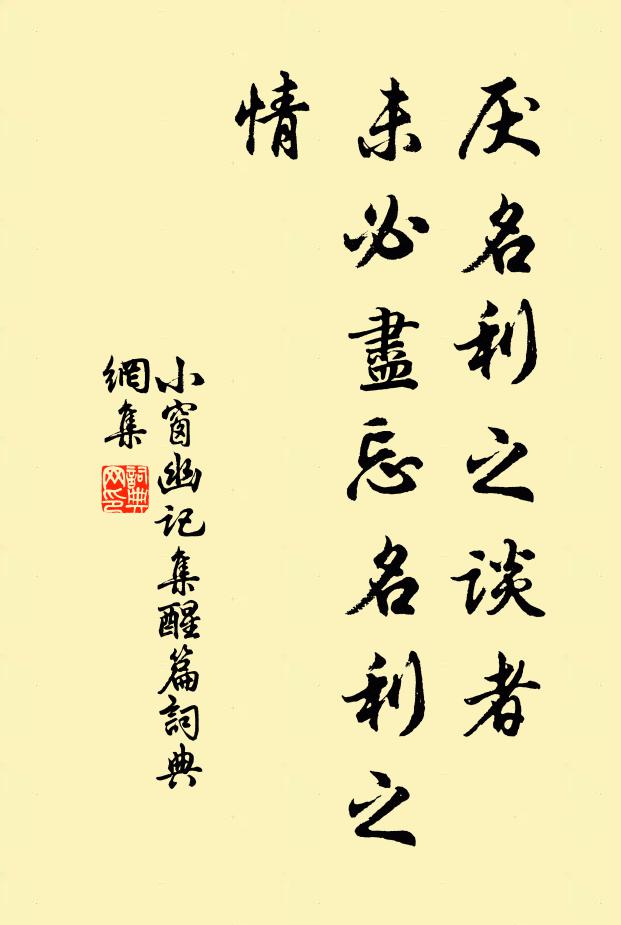 厌名利之谈者
未必盡忘名利之
情
小窗幽记集醒篇詞典
網集
詞典网印